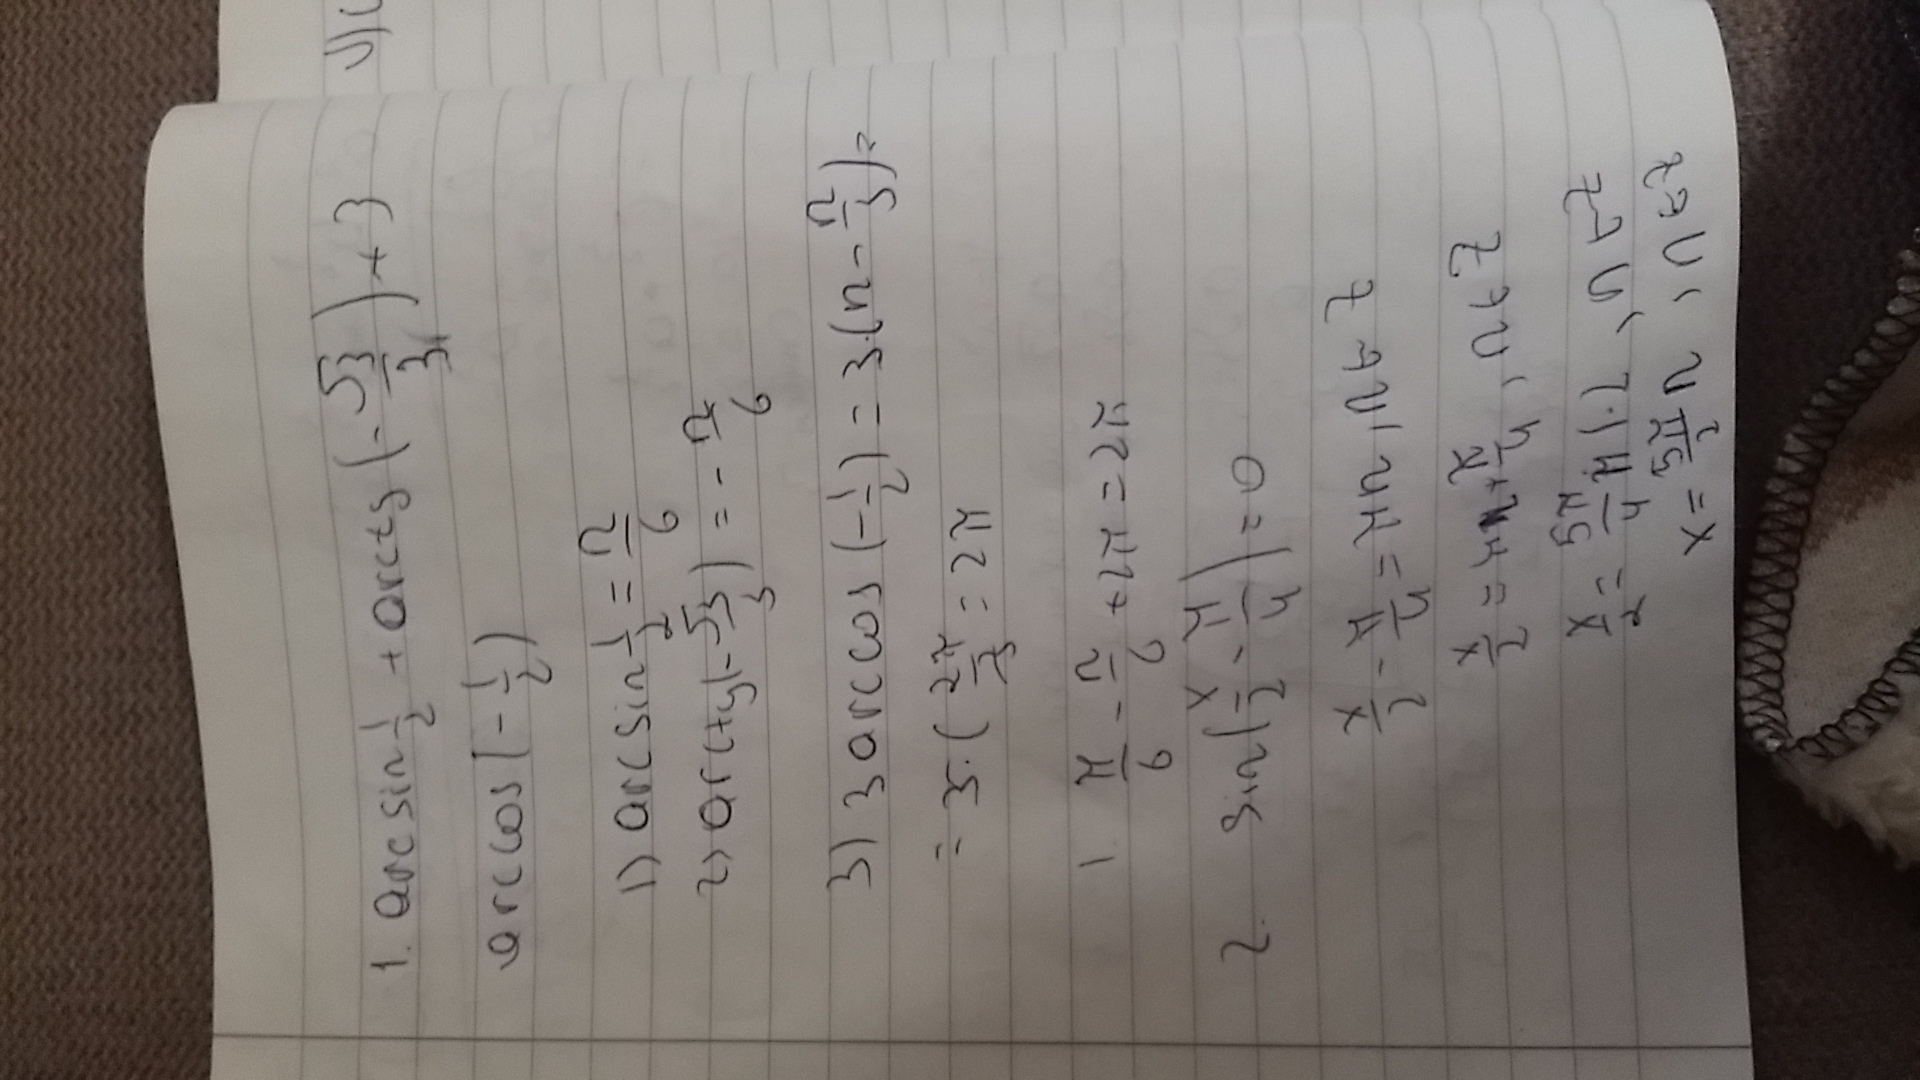 1. arcsin 1/2 + arctg(-√3/3) + 3
arccos(-1/2)
1) arcsin 1/2 = π/6
2) arctg(-√3/3) = -π/6
3) 3arccos(-1/2) = 3·(π - π/3) =
= 3·(2π/3) = 2π
π/6 - π/6 + 2π = 2π
2. sin(x/2 - π/4) = 0
x/2 - π/4 = πn, n∈Z
x/2 = πn + π/4, n∈Z
x/2 = 5π/4 |·2, n∈Z
x = 5π/2 n, n∈Z